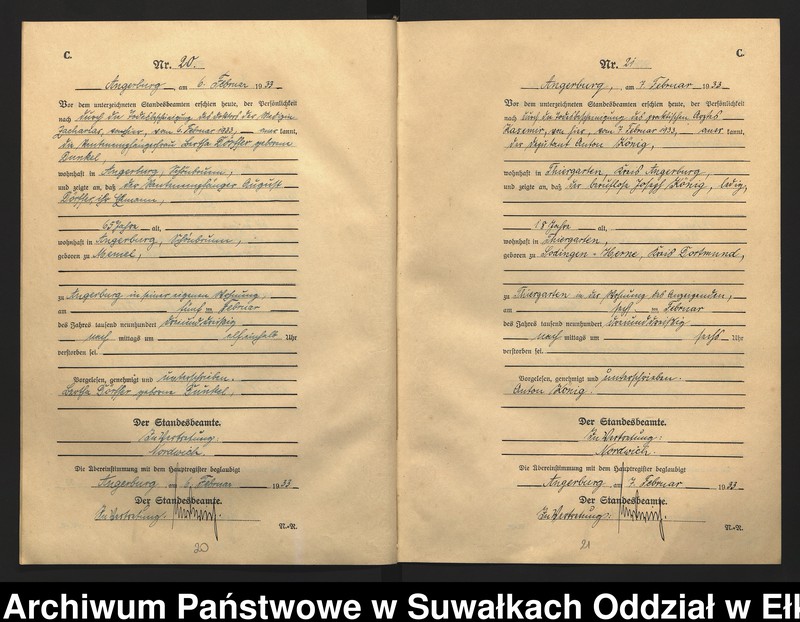 C.
Nr. 20.
Angerburg, am 6. Februar 1933
Vor dem unterzeichneten Standesbeamten erschien heute, der Persönlichkeit
nach durch die Todesbescheinigung des Doktors der Medizin
Zacharias, von hier, vom 6. Februar 1933, aner kannt,
die Rentenempfängerfrau Bertha Dörffer geborene
Kunkel,
wohnhaft in Angerburg, Schönbrunn,
und zeigte an, daß der Rentenempfänger August
Dörffer ihr Ehemann,
65 Jahre alt,
wohnhaft in Angerburg, Schönbrunn,
geboren zu Memel,
zu Angerburg in seiner eigenen Wohnung,
am fünften Februar
des Jahres tausend neunhundert dreiunddreißig
nach mittags um elfeinhalb Uhr
verstorben sei.
Vorgelesen, genehmigt und unterschrieben.
Bertha Dörffer geborene Kunkel,
Der Standesbeamte.
In Vertretung:
Nordwich.
Die Übereinstimmung mit dem Hauptregister beglaubigt
Angerburg am 6. Februar 1933
Der Standesbeamte.
In Vertretung:
N.-R.
20
C.
Nr. 21
Angerburg, am 7. Februar 1933
Vor dem unterzeichneten Standesbeamten erschien heute, der Persönlichkeit
nach durch die Todesbescheinigung des praktischen Arztes
von hier, vom 7. Februar 1933, aner kannt,
der Deputant Anton König,
wohnhaft in Thiergarten, Kreis Angerburg,
und zeigte an, daß der berufslose Joseph König, ledig,
18 Jahre alt,
wohnhaft in Thiergarten,
geboren zu Sodingen - Herne, Kreis Dortmund,
zu Thiergarten in der Wohnung des Anzeigenden,
am sechsten Februar
des Jahres tausend neunhundert dreiunddreißig
nach mittags um sechs Uhr
verstorben sei.
Vorgelesen, genehmigt und unterschrieben.
Anton König.
Der Standesbeamte.
In Vertretung:
Nordwich.
Die Übereinstimmung mit dem Hauptregister beglaubigt
Angerburg am 7. Februar 1933
Der Standesbeamte.
In Vertretung:
N.-R.
21
Archiwum Państwowe w Suwałkach Oddział w Ełk